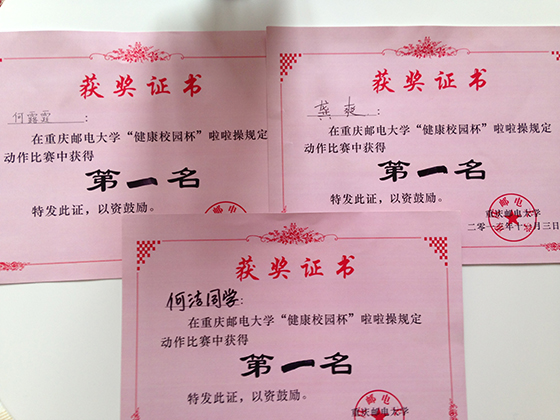 获奖证书
何露霏:
在重庆邮电大学“健康校园杯”啦啦操规定
动作比赛中获得
第一名
特发此证，以资鼓励。
邮电
获奖证书
龚爽:
在重庆邮电大学“健康校园杯”啦啦操规定
动作比赛中获得
第一名
特发此证，以资鼓励。
重庆邮电大学
获奖证书
何洁同学:
在重庆邮电大学“健康校园杯”啦啦操规定
动作比赛中获得
第一名
特发此证，以资鼓励。
重庆邮电大学